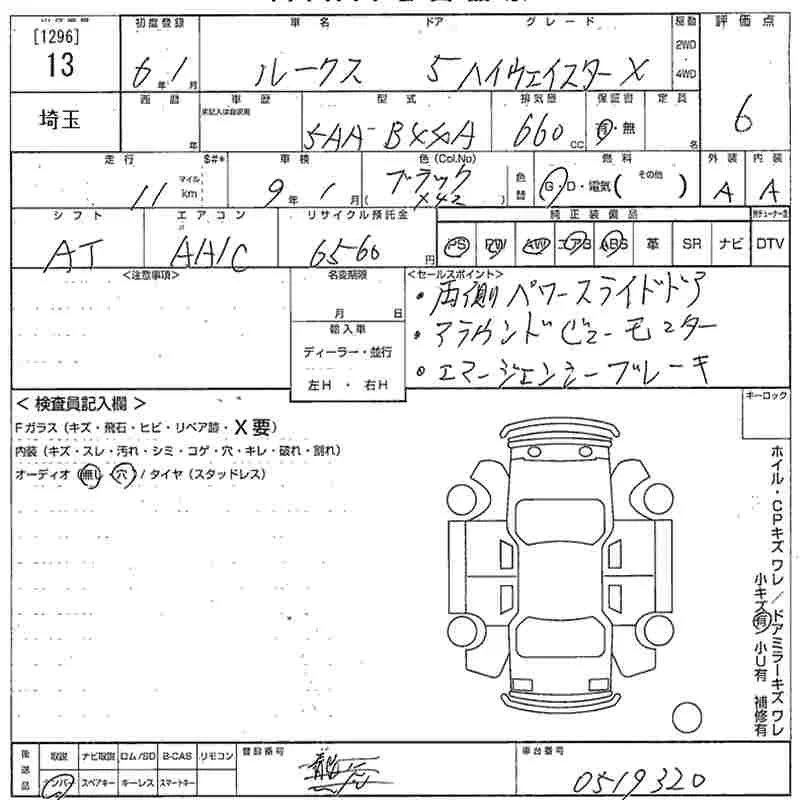 [1296]
13
初度登録 車名 ドア グレード 駆動 評価点
6年1月 ルークス 5 ハイウェイスターX 2WD 4WD
埼玉
西暦 車歴 型式 排気量 保証書 定員
年 未記入は自家用 5AA-B44A 660cc 有・無 名 6
走行 S#* 車検 色(Col.No) 色替 燃料 外装 内装
11 マイル km 9年1月 ブラック (X42) G・D・電気( その他 ) A A
シフト エアコン リサイクル預託金 純正装備品
AT AA/C 6560円 PS PW AW エアB ABS 革 SR ナビ DTV
<注意事項> 名変期限 <セールスポイント>
月 日
・両側パワースライドドア
輸入車
・アラウンドビューモニター
ディーラー・並行
・エマージェンシーブレーキ
左H・右H
<検査員記入欄> キーロック
Fガラス(キズ・飛石・ヒビ・リペア跡・X要)
内装(キズ・スレ・汚れ・シミ・コゲ・穴・キレ・破れ・割れ)
オーディオ(無し・穴)/タイヤ(スタッドレス)
ホイル・CPキズワレ/ドアミラーキズワレ
小キズ有 小U有 補修有
後送品 取説 ナビ取説 ロム/SD B-CAS リモコン 登録番号 車台番号
ナンバー スペアキー キーレス スマートキー 0519320